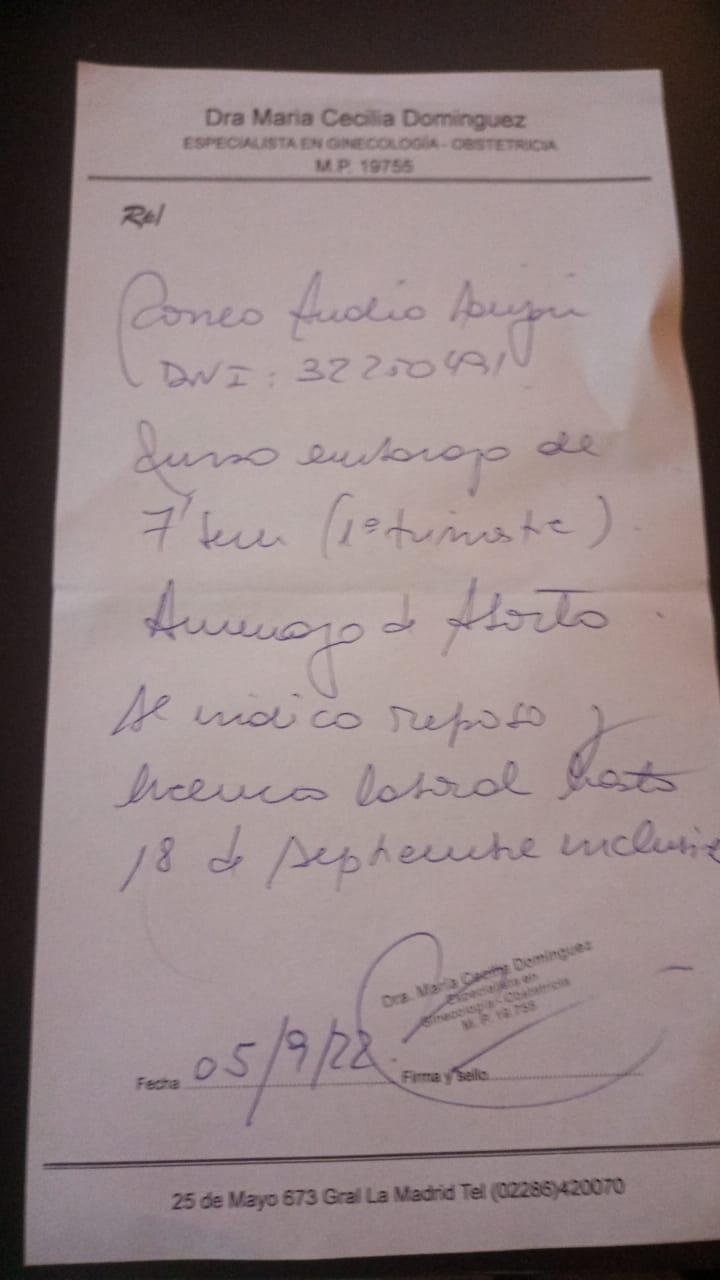 Dra Maria Cecilia Dominguez
ESPECIALISTA EN GINECOLOGÍA - OBSTETRICIA
M.P. 19755
Rp/
Romeo
DNI: 32250491
Curso embarazo de
7 sem (1º trimestre).
Amenaza de Aborto.
Se indica reposo y
licencia laboral hasta
18 de Septiembre inclusive
Dra. María Cecilia Dominguez
Especialista en
Ginecología - Obstetricia
M. P. 19.755
Fecha 05/9/22. Firma y sello
25 de Mayo 673 Gral La Madrid Tel (02286)420070